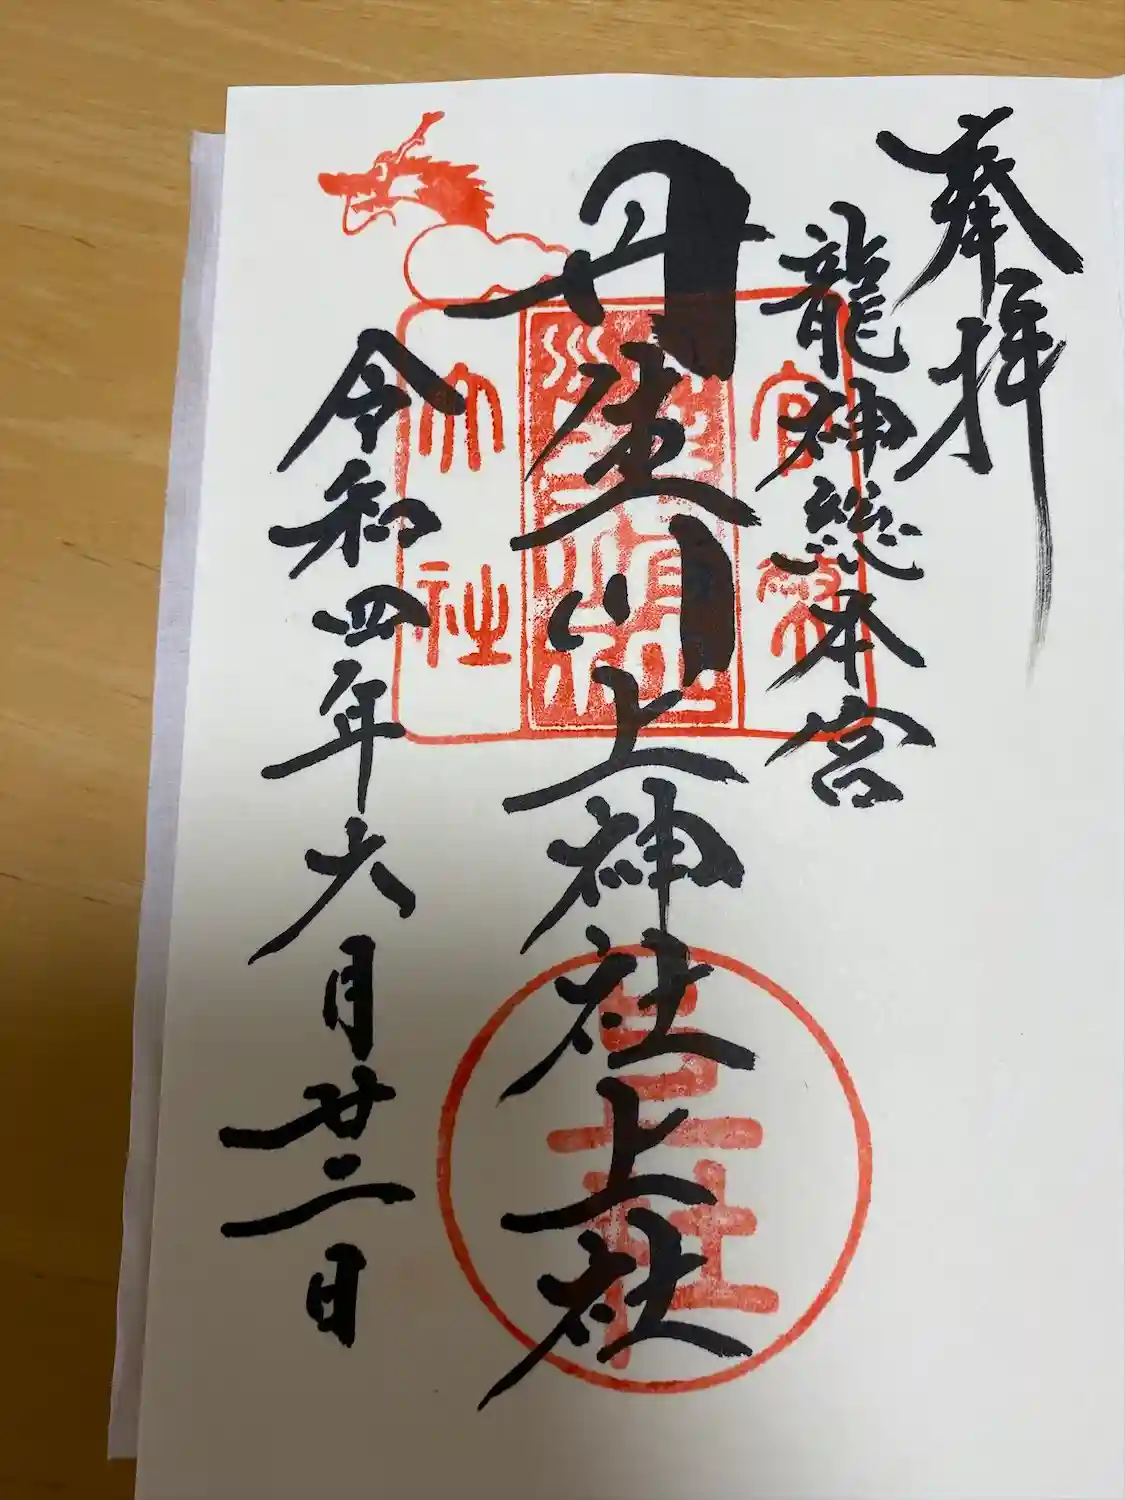 奉拝
龍神総本宮
丹生川上神社上社
令和四年六月廿二日
官幣
大社
上社